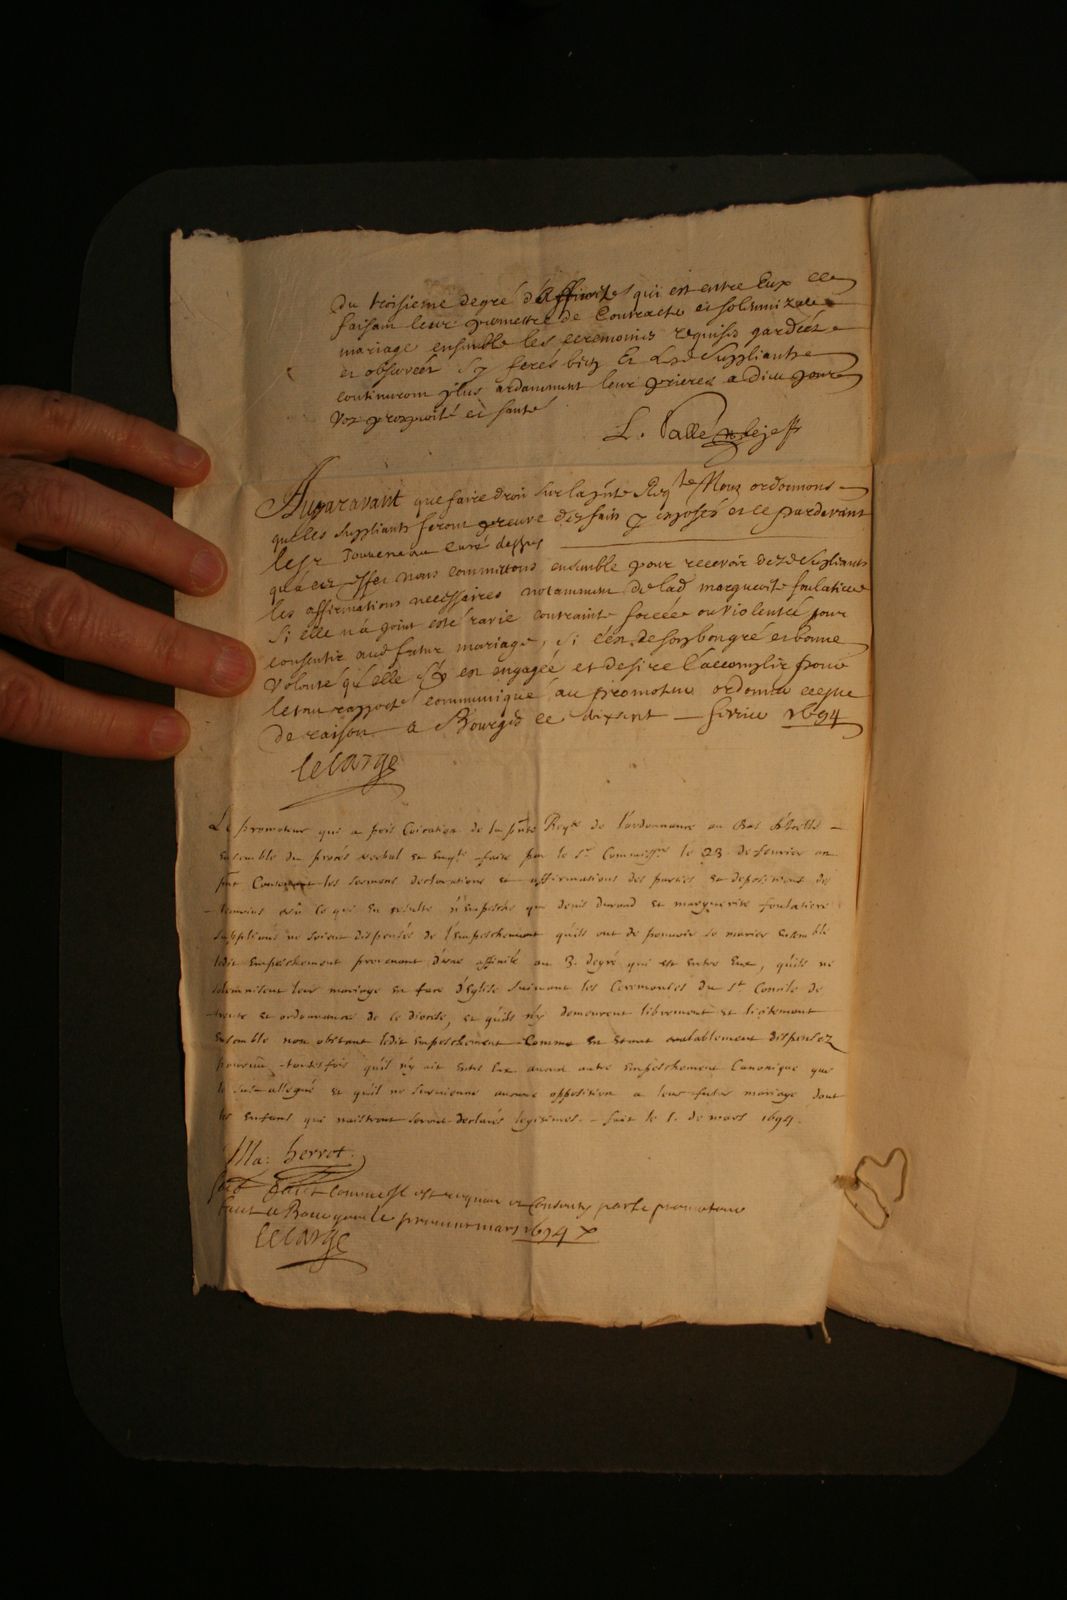 Du troisieme degré d'affinité qui est entre Eux ce
faisant leur permettre de Contracter et solemnizer
mariage ensemble les ceremonies requises gardées
et observées Sy ferés bien Et lesd Suppliants
continueront plus ardamment leur prieres a Dieu pour
Vox prosperité et santé
L.
Auparavant que faire droit sur la pnte Reqte Nous ordonnons
que les suppliants feront preuve des faits y exposés et ce pardevant
le sr Touneneau Curé
qu'a cet effet nous commettons ensemble pour recevoir desd suppliants
les affirmations necessaires notamment de lad marguerite foulatiere
Si elle n'a point esté ravie contrainte forcée ou violentée pour
consentir aud futur mariage, si c'est de son bon gré et bonne
volonté qu'elle s'y est engagée et desire l'accomplir pour
le tout rapporté communiqué au promoteur ordonner ce que
de raison a Bourges ce dixsept febvrier 1694
lelarge
Le promoteur qui a pris Coication de la pnte Reqte de l'ordonnance au Bas d'Icelle
Ensemble du procés verbal et Enqte faite par le sr Commissre le 23 de fevrier an
pnt Contenant les sermens declarations et affirmations des parties et depositions des
temoins veü ce qui En resulte n'Empesche que denis durand et marguerite foulatiere
supplians ne soient dispensés de l'Empeschement qu'ils ont de pouvoir se marier Ensemble
ledit Empeschement provenant d'une affinité au 3. degré qui est Entre Eux, qu'ils ne
solemnisent leur mariage En face d'Eglise suivant les Ceremonies du st Concile de
trente et ordonnances de ce diocese, et qu'ils n'y demeurent librement et licitement
Ensemble non obstant ledit Empeschement Comme En Etant valablement dispensez
pourveü toutesfois qu'il n'y ait Entre Eux aucun autre Empeschement Canonique que
le susallegué et qu'il ne survienne aucune opposition a leur futur mariage dont
les Enfans qui naistront seront declarés legitimes. fait le 1. de mars 1694.
Ma: herrot.
soit fait Comme Il est requis et Consenty par le promoteur
fait a Bourges le premier mars 1694
lelarge